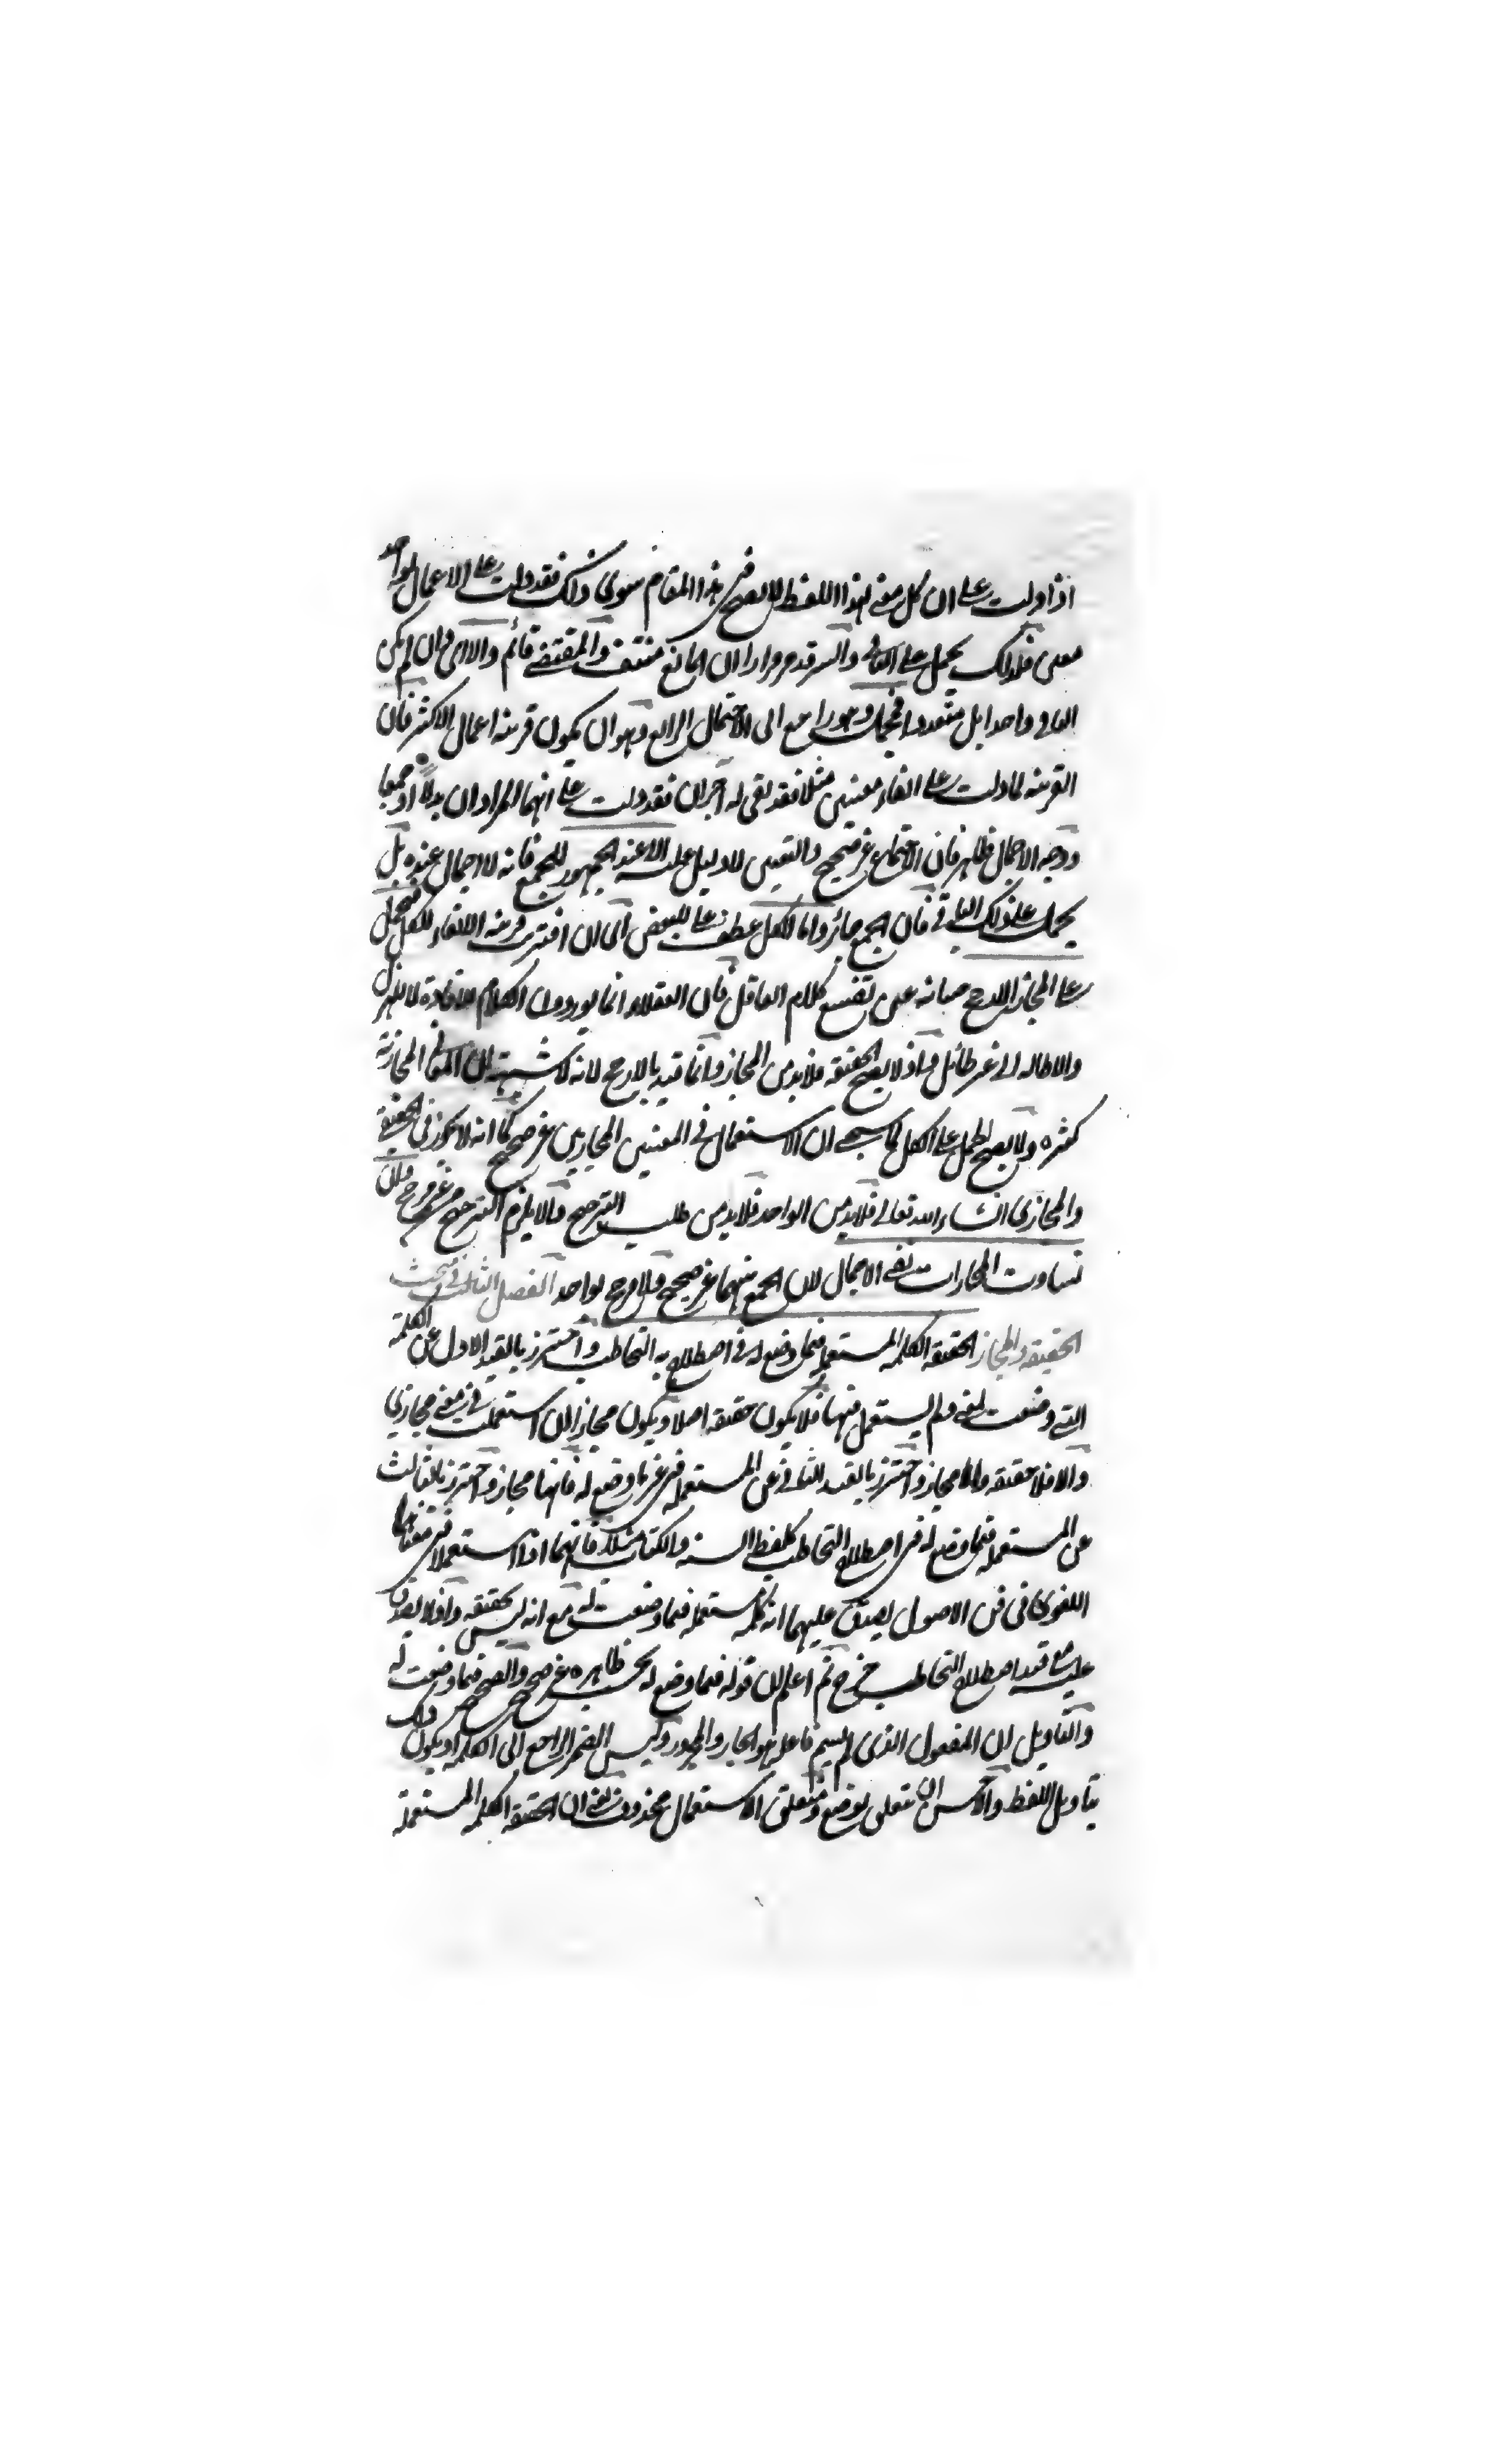 اذا دلت على ان كل معنى لهذا اللفظ لا يصح في هذا المقام سوى ذلك فقد دلت على الاعمال لواحد
معنى فلذلك يحمل على الباقي والسر قد مر مرارا ان المانع منتف والمقتضى قائم والا اى وان لم يكن
الباقي واحدا بل متعددا فمجمل وهو راجع الى الاحتمال الرابع وهو ان يكون قرينة اعمال الاكثر فان
القرينة لما دلت على الغاء معنيين مثلا فقد بقى له آخران فقد دلت على انهما المرادان بدلا او جمعا
ووجه الاجمال ظاهر فان الاجتماع غير صحيح والتعيين لا دليل عليه الا عند المجوز للجمع فانه لا اجمال عنده بل
يحمل على ذلك الباقي فان الجمع جائز واما للكل عطف على للبعض اى ان اقترن قرينة الالغاء للكل فيحمل
على المجاز الارجح صيانة عن تضييع كلام العاقل فان العقلاء انما يوردون الكلام للافادة لا للهزل
والاطالة الى غير طائل واذ لا يصح الحقيقة فلا بد من المجاز وانما قيد بالارجح لانه لا شبهة ان المعاني المجازية
كثيرة ولا يصح الحمل على الكل لما سيجئ ان الاستعمال في المعنيين المجازيين غير صحيح كما انه لا يجوز في الحقيقي
والمجازى انشاء الله تعالى فلا بد من الواحد فلا بد من طلب الترجيح والا يلزم الترجيح من غير مرجح فان
تساوت المجازات بقى الاجمال لان الجمع بينهما غير صحيح ولا مرجح لواحد الفصل الثالث في مبحث
الحقيقة والمجاز الحقيقة الكلمة المستعملة فيما وضع له في اصطلاح به التخاطب واحترز بالقيد الاول عن الكلمة
التى وضعت لمعنى ولم يستعمل فيها فلا يكون حقيقة اصلا ويكون مجازا ان استعملت في معنى مجازى
والا فلا حقيقة ولا مجاز واحترز بالقيد الثاني عن المستعملة في غير ما وضع له فانها مجاز واحترز بالثالث
عن المستعملة فيما وضع له في اصطلاح التخاطب كلفظ السنة والكتاب مثلا فانهما اذا استعملا في معناهما
اللغوى في فن الاصول يصدق عليهما انه كلمة مستعملة فيما وضعت له مع انه ليس بحقيقة واذ لا يصدق
عليه قيد اصطلاح التخاطب خرج ثم اعلم ان قوله فيما وضع له بحسب ظاهره غير صحيح والصحيح فيما وضعت له
والتاويل ان المفعول الذى لم يسم فاعله هو الجار والمجرور وليس الضمير الراجع الى الكلمة او يكون ذلك
بتاويل اللفظ والاحسن ان يتعلق بوضع ومتعلق الاستعمال محذوف يعنى ان الحقيقة الكلمة المستعملة